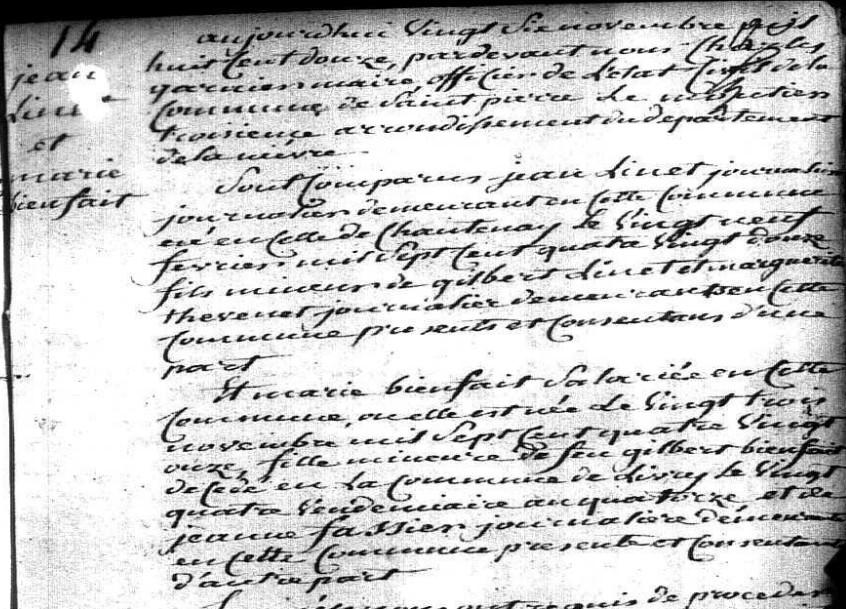 14
jean
Linet
et
marie
bienfait
aujourdhui vingt six novembre mil
huit cent douze, pardevant nous Charles
garnier maire officier de Letat Civil de la
Commune de Saint pierre le
troisieme arrondissement du departement
de la nievre
Sont Comparus jean Linet journalier
journalier demeurant en Cette Commune
né en Celle de Chantenay le vingt neuf
fevrier mil Sept Cent quatre vingt douze
fils mineur de gilbert Linet et marguerite
thevenet journalier demeurants en Cette
Commune presents et Consentans d'une
part
Et marie bienfait Salariée en Cette
Commune, ou elle est née le vingt trois
novembre mil Sept Cent quatre vingt
onze, fille mineure de feu gilbert bienfait
décédé en la Commune de Livry le vingt
quatre vendemiaire an quatorze et de
jeanne fassier journaliere demeurante
en Cette Commune presente et Consentante
d'autre part
nous ont requis de proceder